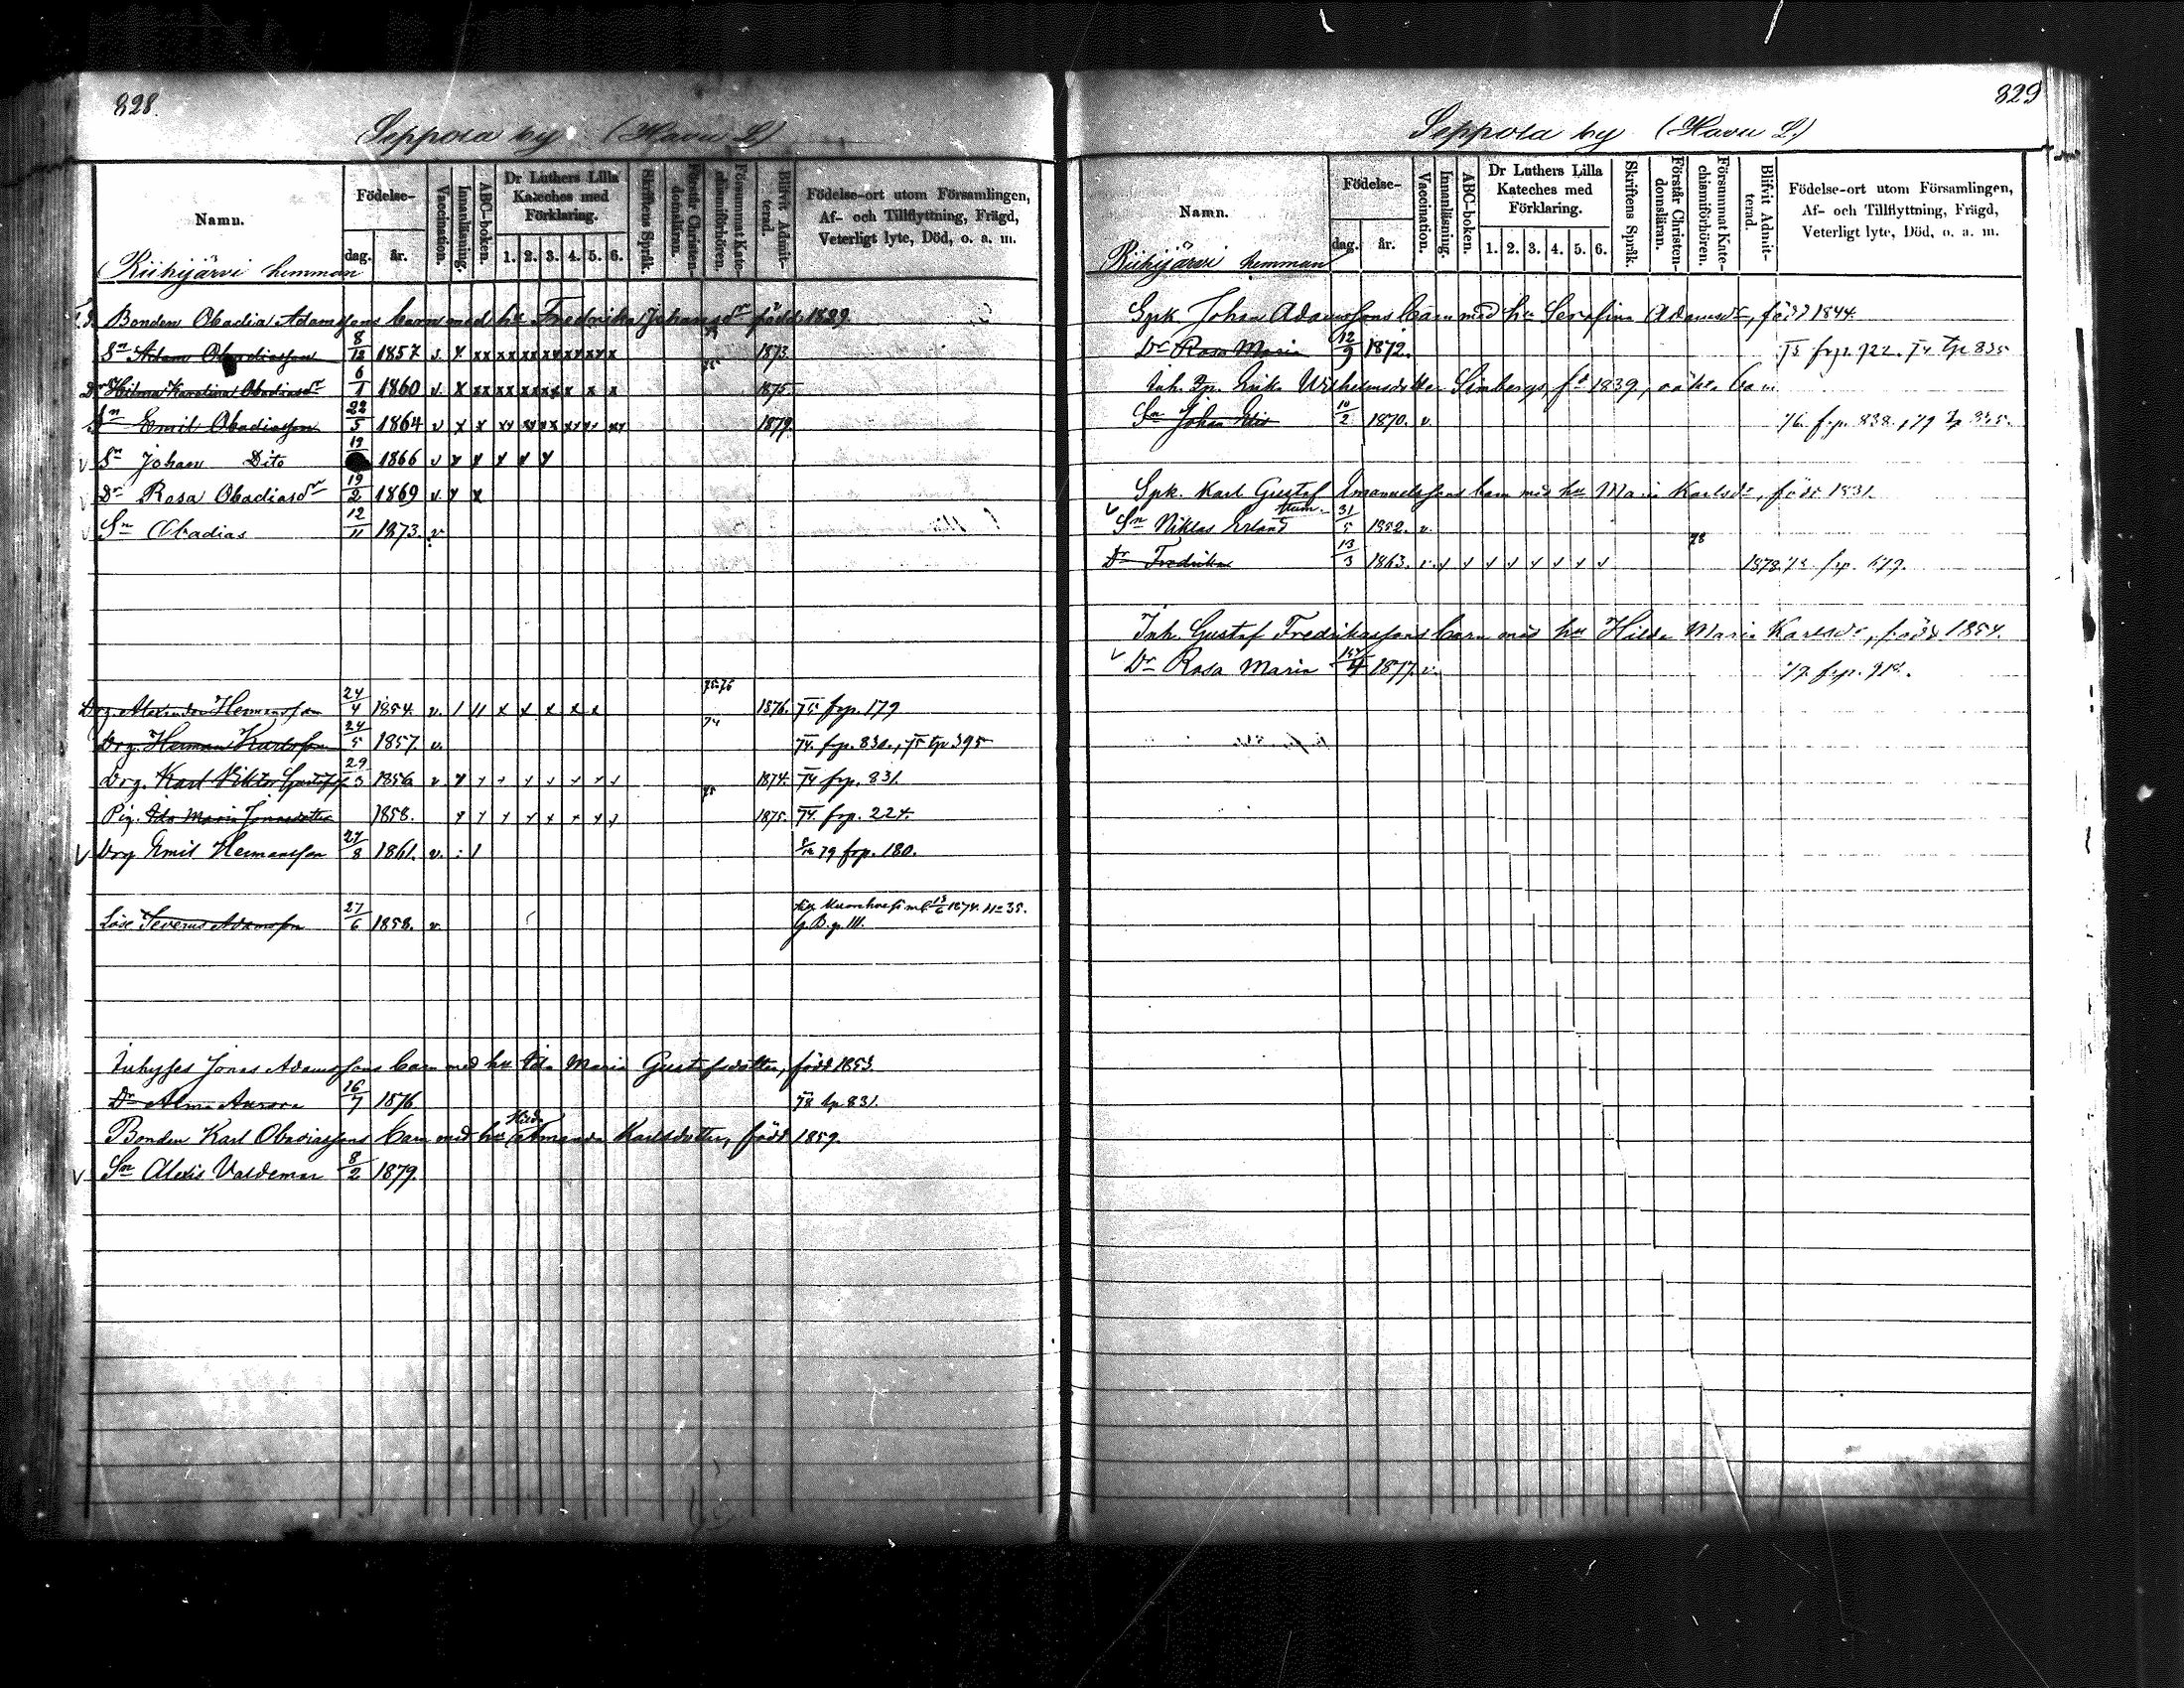 828.
Seppola by (Havu L)
Namn.
Födelse-
dag.
år.
Vaccination.
Innanläsning.
ABC-boken.
Dr Luthers Lilla Kateches med Förklaring.
1. 2. 3. 4. 5. 6.
Skriftens Språk.
Förstår Christendomsläran.
Försummat Katechismiförhören.
Blifvit Admitterad.
Födelse-ort utom Församlingen,
Af- och Tillflyttning, Frägd,
Veterligt lyte, Död, o. a. m.
Riihijärvi hemman
Bonden Obadia Adamssons barn med hu Fredrika Johansdr född 1829
Sn Adam Obadiasson 8/12 1857 v. x xx xx xx xx xx xx x 1873.
Dr Hilma Karolina Obadiasdr 6/1 1860 v. x xx xx xx xx x x x 75 1875.
Sn Emil Obadiasson 22/5 1864 v x x xx xx xx xx xx 1879.
v Sn Johan Dito 19 1866 v x x x x x
v Dr Rosa Obadiasdr 19/2 1869 v. x x
v Sn Obadias 12/11 1873. v
Drg. Alexander Hermansson 24/4 1854. v. 1 11 x x x x x 75-76 1876. 75 frp. 179
Drg. Herman Karlsson 24/5 1857. v. 74 74. frp. 830., 75 tp 395
Drg. Karl Viktor Gustafss. 29/3 1856 v. x x x x x x x x 1874. 74 frp. 831.
Pig. Ida Maria Jonasdotter 1858. x x x x x x x x 75 1875. 74. frp. 224.
v Drg Emil Hermansson 27/8 1861. v. : 1 79 frp. 180.
Löse Severus Adamsson 27/6 1858. v. 1874. 11=35.
G. B. p. 111.
Inhyses Jonas Adamssons barn med hu Ida Maria Gustafsdotter, född 1853.
Dr Alma Aurora 16/7 1876 78 tp 831.
Hilda
Bonden Karl Obadiassons barn med hu Amanda Karlsdotter, född 1859.
v Sn Alexis Valdemar 8/2 1879.
829
Seppola by (Havu L.)
Namn.
Födelse-
dag.
år.
Vaccination.
Innanläsning.
ABC-boken.
Dr Luthers Lilla Kateches med Förklaring.
1. 2. 3. 4. 5. 6.
Skriftens Språk.
Förstår Christendomsläran.
Försummat Katechismiförhören.
Blifvit Admitterad.
Födelse-ort utom Församlingen,
Af- och Tillflyttning, Frägd,
Veterligt lyte, Död, o. a. m.
Riihijärvi hemman
Spk Johan Adamssons barn med hu Serafina Adamsdr, född 1844.
Dr Rosa Maria 12/9 1872. 73 frp. 722. 74 tp 835
Inh. Erika Wilhelmsdotter fd 1839, oäkta barn
Sn Johan 10/2 1870. v. 76. frp. 838.
Spk. Karl Gustaf Emanuelssons barn med hu Maria Karlsdr, född 1831.
v Sn Niklas Erland 31/5 1852. v.
Dr Fredrika 13/3 1863. v. x x x x x x x x 78 1878. frp. 679.
Inh. Gustaf Fredrikssons barn med hu Hilda Maria Karlsdr, född 1854.
v Dr Rosa Maria 4 1877. v.